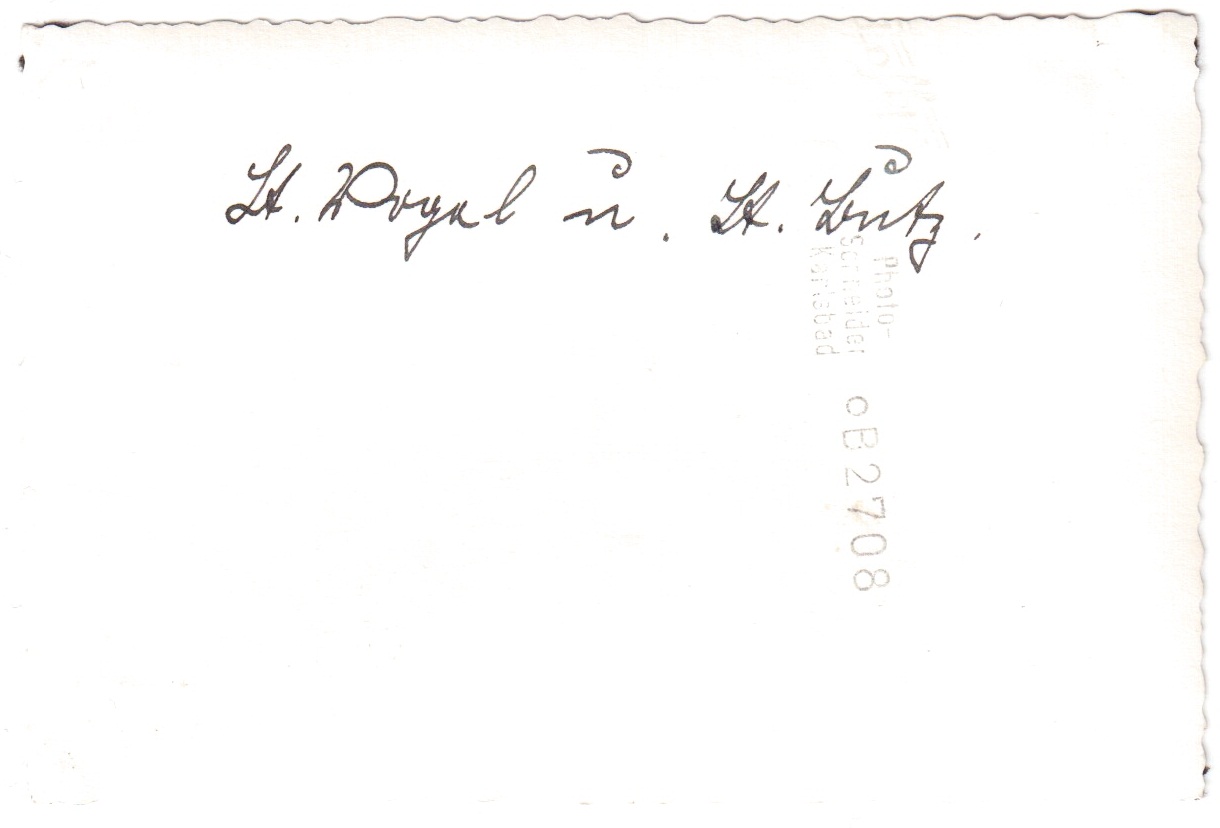 Lt. Vogel u. Lt. Butz.
Photo-
Schneider
Karlsbad
oB2708